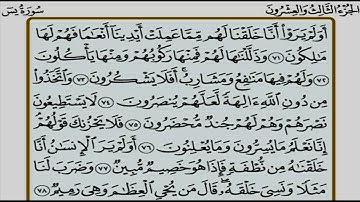 الجزء الثالث والعشرون سورة يس
أَوَلَمْ يَرَوْا۟ أَنَّا خَلَقْنَا لَهُم مِّمَّا عَمِلَتْ أَيْدِينَآ أَنْعَٰمًا فَهُمْ لَهَا
مَٰلِكُونَ ٧١ وَذَلَّلْنَٰهَا لَهُمْ فَمِنْهَا رَكُوبُهُمْ وَمِنْهَا يَأْكُلُونَ
٧٢ وَلَهُمْ فِيهَا مَنَٰفِعُ وَمَشَارِبُ أَفَلَا يَشْكُرُونَ ٧٣ وَٱتَّخَذُوا۟
مِن دُونِ ٱللَّهِ ءَالِهَةً لَّعَلَّهُمْ يُنصَرُونَ ٧٤ لَا يَسْتَطِيعُونَ
نَصْرَهُمْ وَهُمْ لَهُمْ جُندٌ مُّحْضَرُونَ ٧٥ فَلَا يَحْزُنكَ قَوْلُهُمْ
إِنَّا نَعْلَمُ مَا يُسِرُّونَ وَمَا يُعْلِنُونَ ٧٦ أَوَلَمْ يَرَ ٱلْإِنسَٰنُ أَنَّا
خَلَقْنَٰهُ مِن نُّطْفَةٍ فَإِذَا هُوَ خَصِيمٌ مُّبِينٌ ٧٧ وَضَرَبَ لَنَا
مَثَلًا وَنَسِىَ خَلْقَهُۥ قَالَ مَن يُحْىِ ٱلْعِظَٰمَ وَهِىَ رَمِيمٌ ٧٨